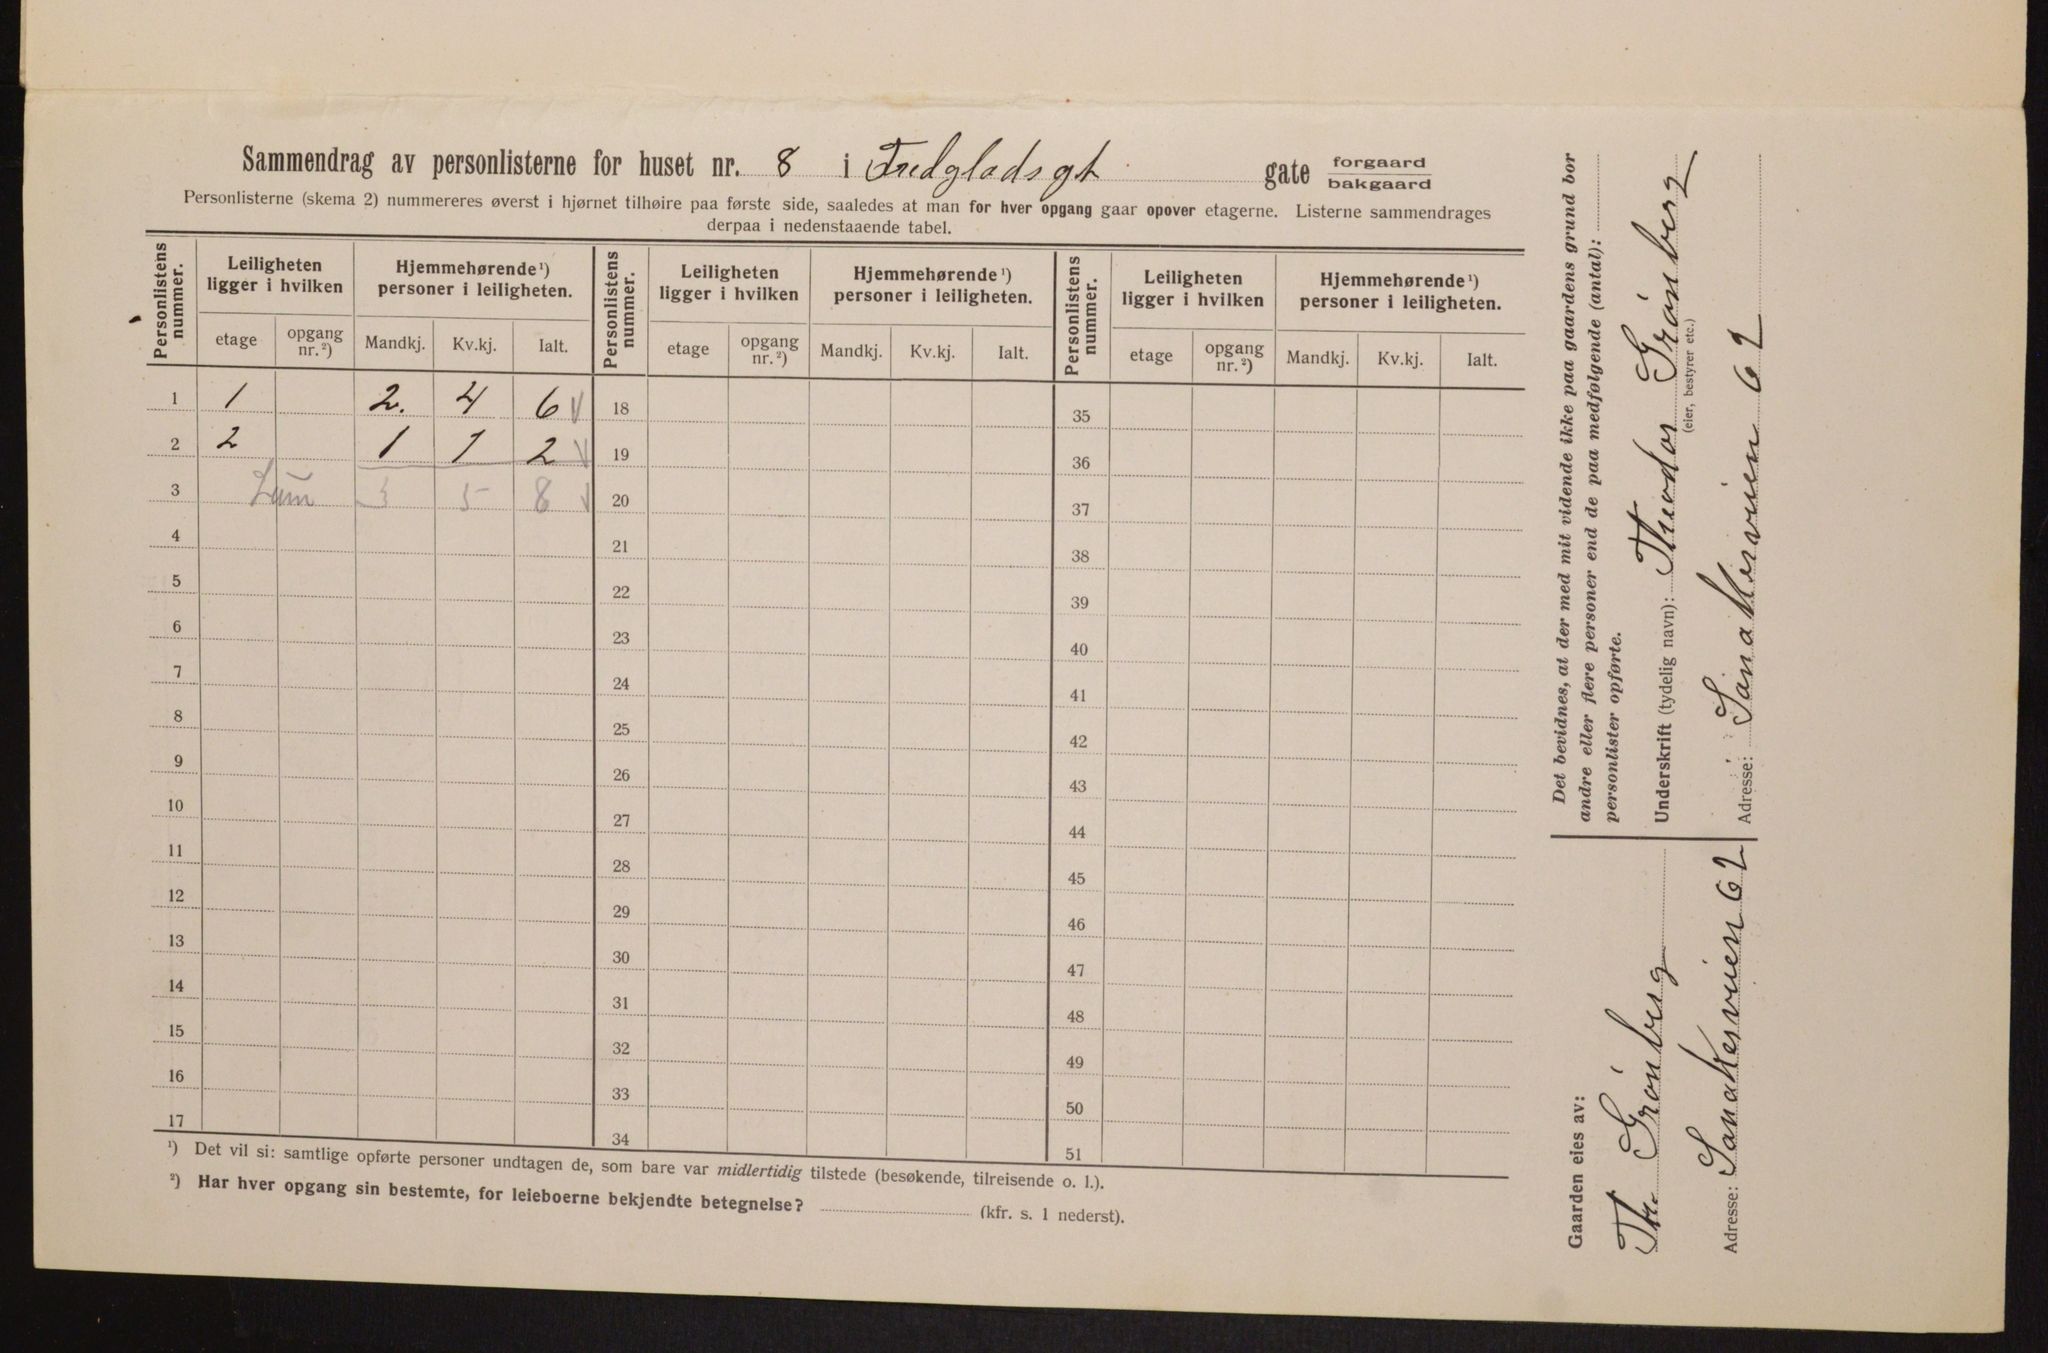 Sammendrag av personlisterne for huset nr. 8 i Fredgladsgt gate forgaard
bakgaard
Personlisterne (skema 2) nummereres øverst i hjørnet tilhøire paa første side, saaledes at man for hver opgang gaar opover etagerne. Listerne sammendrages
derpaa i nedenstaaende tabel.
Personlistens nummer. Leiligheten ligger i hvilken Hjemmehørende ¹) personer i leiligheten. Personlistens nummer. Leiligheten ligger i hvilken Hjemmehørende ¹) personer i leiligheten. Personlistens nummer. Leiligheten ligger i hvilken Hjemmehørende ¹) personer i leiligheten.
etage opgang nr. ²) Mandkj. Kv.kj. Ialt. etage opgang nr. ²) Mandkj. Kv.kj. Ialt. etage opgang nr. ²) Mandkj. Kv.kj. Ialt.
1 1 2. 4 6 18 35
2 2 1 1 2 19 36
3 3 5 8 20 37
4 21 38
5 22 39
6 23 40
7 24 41
8 25 42
9 26 43
10 27 44
11 28 45
12 29 46
13 30 47
14 31 48
15 32 49
16 33 50
17 34 51
¹) Det vil si: samtlige opførte personer undtagen de, som bare var midlertidig tilstede (besøkende, tilreisende o. l.).
²) Har hver opgang sin bestemte, for leieboerne bekjendte betegnelse? (kfr. s. 1 nederst).
Det bevidnes, at der med mit vidende ikke paa gaardens grund bor
andre eller flere personer end de paa medfølgende (antal):
personlister opførte.
Underskrift (tydelig navn): Theodor Grönberg
(eier, bestyrer etc.)
Adresse: Sandakerveien 62
Gaarden eies av:
Th. Grönberg
Adresse: Sandakerveien 62